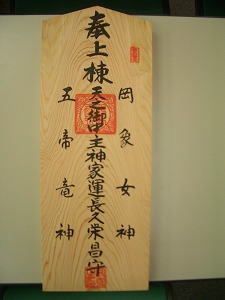 奉上棟
天之御中主神家運長久栄昌守
岡象女神
五帝竜神